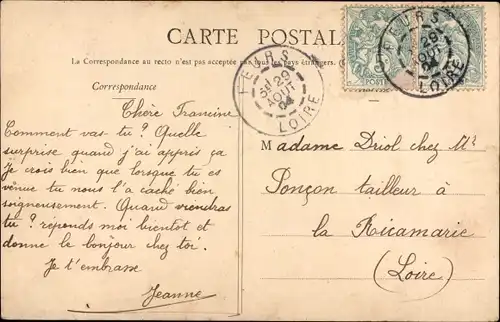 CARTE POSTALE
La Correspondance au recto n'est pas acceptée par tous les pays étrangers.
Correspondance
FEURS
5E 29
AOUT
04
LOIRE
FEURS
29
AOUT
04
LOIRE
Chère Francine
Comment vas tu? Quelle
surprise quand j'ai appris ça
Je crois bien que lorsque tu es
venue tu nous l'a caché bien
soigneusement. Quand viendras
tu? réponds moi bientot et
donne le bonjour chez toi.
Je t'embrasse
Jeanne
Madame Driol chez Mr
Ponçon tailleur à
la Ricamarie
(Loire)